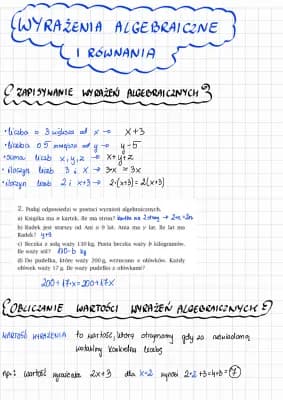 WYRAŻENIA ALGEBRAICZNE
I RÓWNANIA
ZAPISYWANIE WYRAŻEŃ ALGEBRAICZNYCH
• liczba o 3 większa od x → x+3
• liczba o 5 mniejsza od y → y-5
• suma liczb x, y, z → x+y+z
• iloczyn liczb 3 i x → 3x = 3x
• iloczyn liczb 2 i x+3 → 2·(x+3) = 2(x+3)
2. Podaj odpowiedzi w postaci wyrażeń algebraicznych.
a) Książka ma n kartek. Ile ma stron? kartka ma 2 strony → 2·n=2n
b) Radek jest starszy od Ani o 9 lat. Ania ma y lat. Ile lat ma
Radek? y+9
c) Beczka z solą waży 110 kg. Pusta beczka waży b kilogramów.
Ile waży sól? 110-b kg
d) Do pudełka, które waży 200 g, wrzucono x ołówków. Każdy
ołówek waży 17 g. Ile waży pudełko z ołówkami?
200+17·x=200+17x
OBLICZANIE WARTOŚCI WYRAŻEŃ ALGEBRAICZNYCH
WARTOŚĆ WYRAŻENIA to wartość, którą otrzymamy gdy za niewiadomą
konkretną liczbę
np.: wartość wyrażenia 2x+3 dla x=2 wynosi 2·2+3=4+3=7